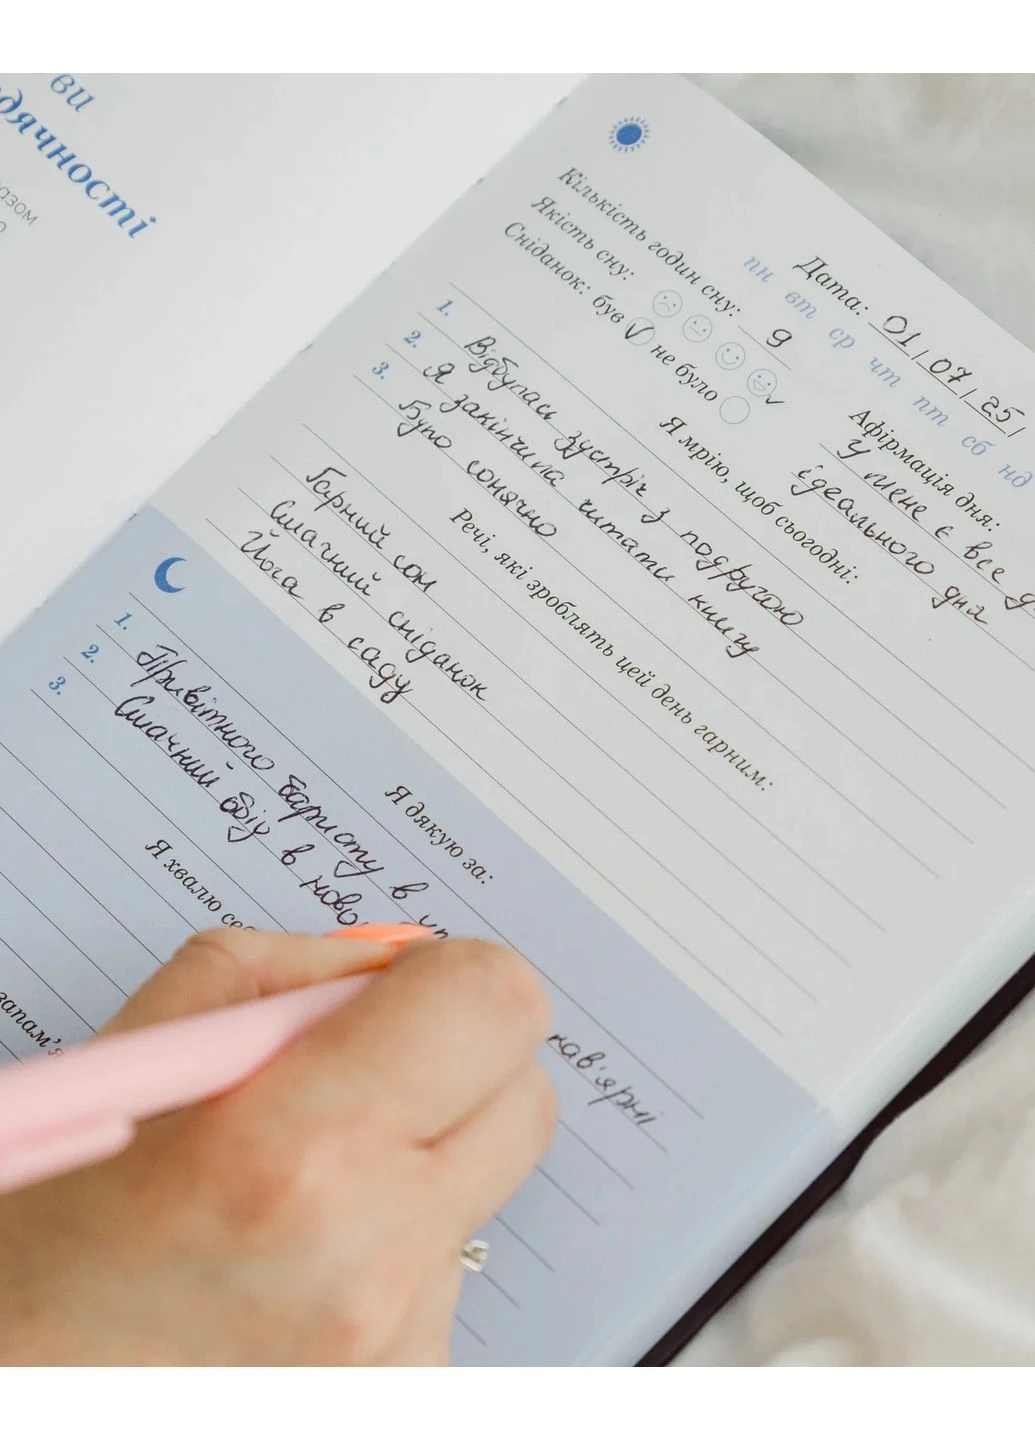 ви
дячності
Дата: 01/07/25/
пн вт ср чт пт сб нд
Кількість годин сну: 9
Якість сну:
Сніданок: був ✓ не було
Афірмація дня:
У мене є все
ідеального дня
Я мрію, щоб сьогодні:
1. Відбулась зустріч з подругою
2. Я закінчила читати книгу
3. Було сонячно
Речі, які зроблять цей день гарним:
Гарний сон
Смачний сніданок
Йога в саду
Я дякую за:
1. Привітного баристу в
2. Смачний обід в кав'ярні
3.
Я хвалю